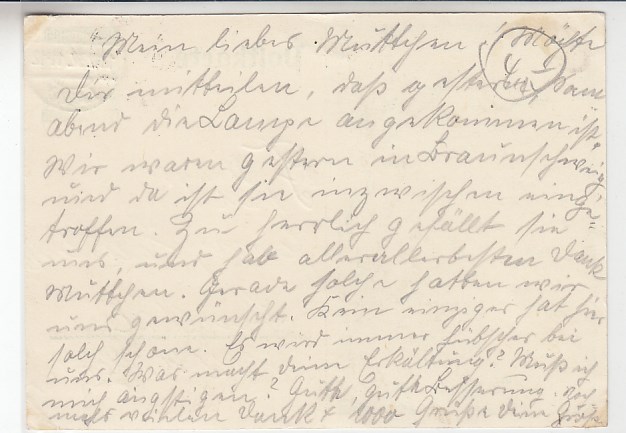 "Mein liebes Muttchen! Möchte
Dir mitteilen, daß gestern
abend die Lampe angekommen ist"
Wir waren gestern in Braunschweig,
und da ist sie inzwischen einge=
troffen. Zu herrlich gefällt sie
uns, und hab allerallerbesten Dank
Muttchen. Gerade solche hatten wir
uns gewünscht. Kein einziger hat hier
solch schöne. Es wird immer hübscher bei
uns. Was macht deine Erkältung? Muß ich
mich ängstigen? Gute, gute Besserung. Noch
mals vielen Dank + 1000 Grüße Deine